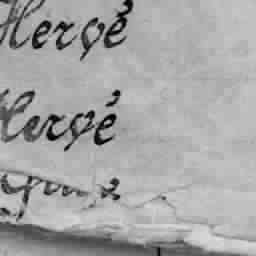 Hergé
Hergé